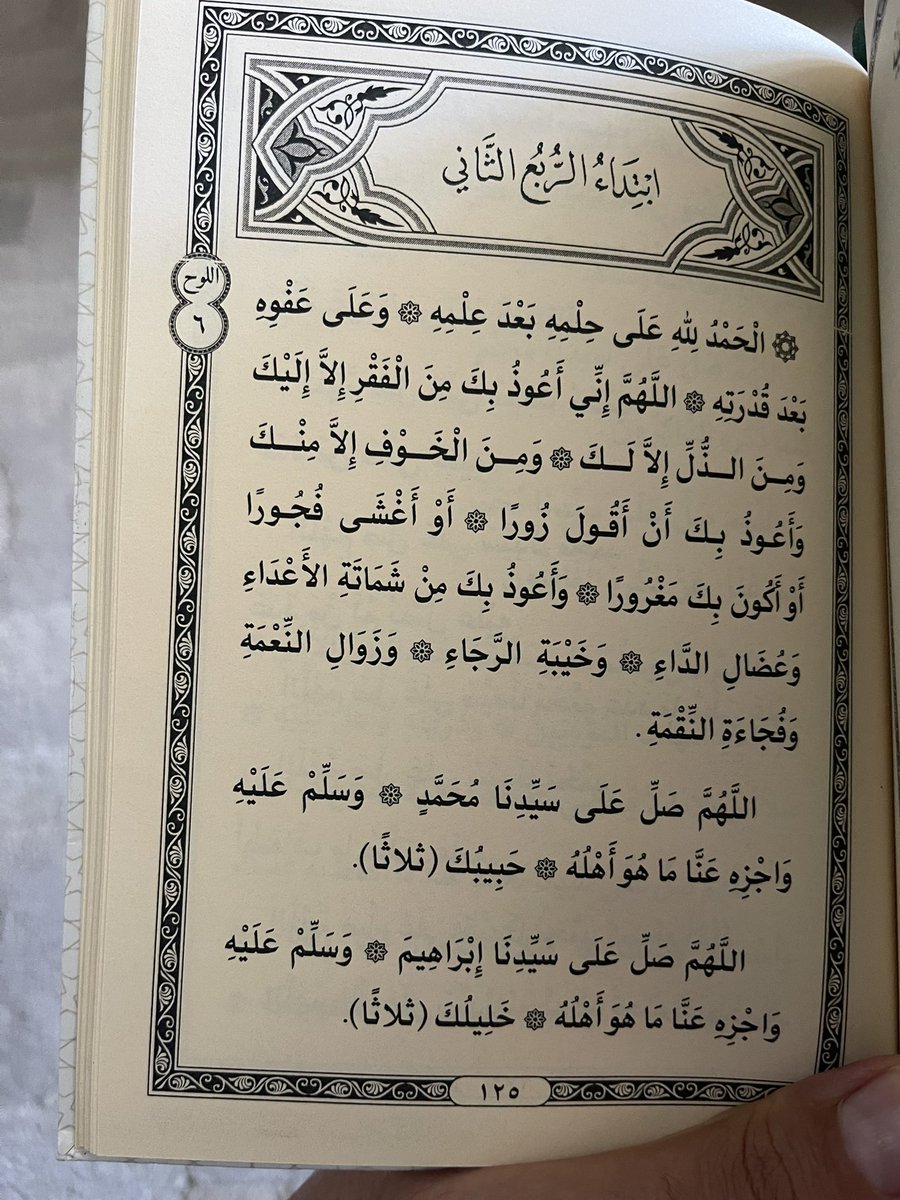 ابْتِدَاءُ الرُّبُعِ الثَّانِي
اللوح
٦
الْحَمْدُ لِلهِ عَلَى حِلْمِهِ بَعْدَ عِلْمِهِ ۞ وَعَلَى عَفْوِهِ
بَعْدَ قُدْرَتِهِ ۞ اللَّهُمَّ إِنِّي أَعُوذُ بِكَ مِنَ الْفَقْرِ إِلاَّ إِلَيْكَ
وَمِنَ الذُّلِّ إِلاَّ لَكَ ۞ وَمِنَ الْخَوْفِ إِلاَّ مِنْكَ
وَأَعُوذُ بِكَ أَنْ أَقُولَ زُورًا ۞ أَوْ أَغْشَى فُجُورًا
أَوْ أَكُونَ بِكَ مَغْرُورًا ۞ وَأَعُوذُ بِكَ مِنْ شَمَاتَةِ الأَعْدَاءِ
وَعُضَالِ الدَّاءِ ۞ وَخَيْبَةِ الرَّجَاءِ ۞ وَزَوَالِ النِّعْمَةِ
وَفُجَاءَةِ النِّقْمَةِ.
اللَّهُمَّ صَلِّ عَلَى سَيِّدِنَا مُحَمَّدٍ ۞ وَسَلِّمْ عَلَيْهِ
وَاجْزِهِ عَنَّا مَا هُوَ أَهْلُهُ ۞ حَبِيبُكَ (ثلاثًا).
اللَّهُمَّ صَلِّ عَلَى سَيِّدِنَا إِبْرَاهِيمَ ۞ وَسَلِّمْ عَلَيْهِ
وَاجْزِهِ عَنَّا مَا هُوَ أَهْلُهُ ۞ خَلِيلُكَ (ثلاثًا).
١٢٥